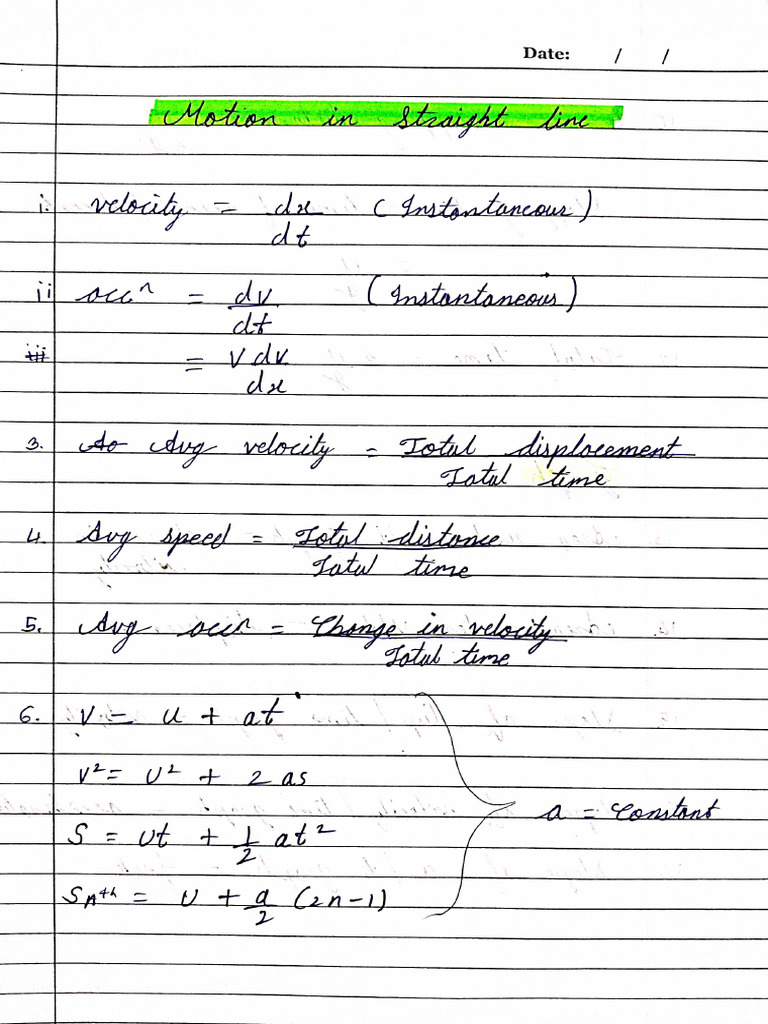 Date: / /
Motion in straight line
i. velocity = dx/dt (Instantaneous)
ii accⁿ = dv/dt (Instantaneous)
iii = v dv/dx
3. Ao Avg velocity = Total displacement/Total time
4. Avg speed = Total distance/Total time
5. Avg accⁿ = Change in velocity/Total time
6. V = u + at
V² = U² + 2 as
S = Ut + 1/2 at²
a = Constant
Snᵗʰ = U + a/2 (2n-1)